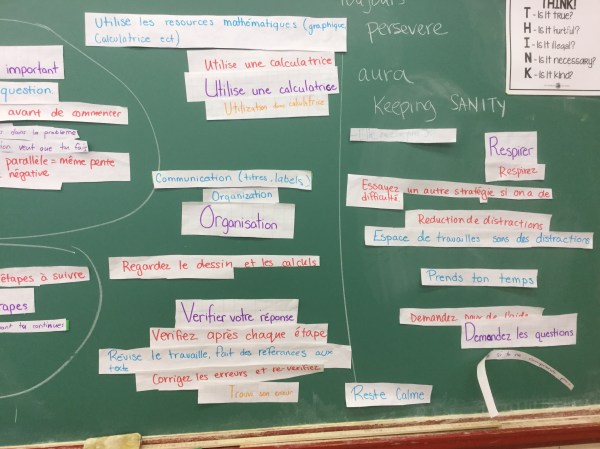 important
question.
avant de commencer
dans le problème
veut que tu fais
parallèle = même pente
négative
étapes à suivre
Utilise les resources mathématiques (graphique,
Calculatrice ect)
Utilise une calculatrice
Utilise une calculatrice
Utilization d'une calculatrice
Communication (titres, labels)
Organization
Organisation
Regardez le dessin et les calculs
Vérifier votre réponse
Verifiez après chaque étape
Révise le travaille, fait des références aux
texte
Corrigez les erreurs et re-verifiez
toujours
persevere
aura
Keeping SANITY
Respirer
Respirez
Essayez un autre stratégie si on a de
difficulté
Reduction de distractions
Espace de travailles sans des distractions
Prends ton temps
Demandez pour de l'aide
Demandez les questions
Reste Calme
THINK!
T - Is it true?
H - Is it hurtful?
I - Is it illegal?
N - Is it necessary?
K - Is it kind?